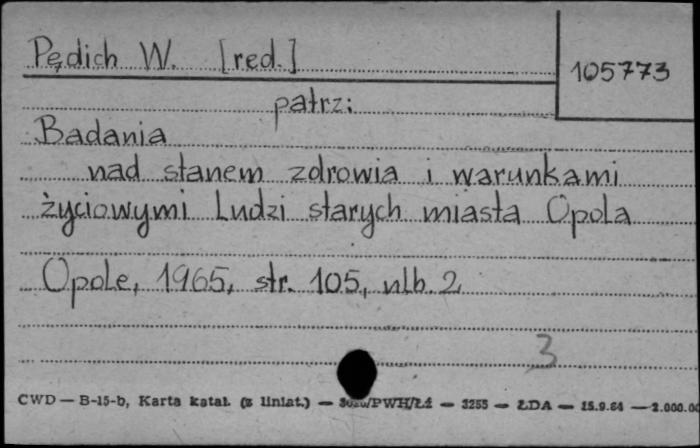 Pędich W. [red.]
105773
patrz:
Badania
nad stanem zdrowia i warunkami
życiowymi ludzi starych miasta Opola
Opole, 1965, str. 105, nlb. 2
3
CWD — B-15-b, Karta katal. (z liniat.) — /PWH/Łź — 3255 — ŁDA — 15.9.64 — 2.000.00